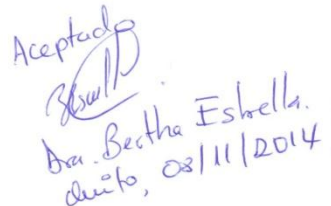 Aceptado
Dra. Bertha Estrella.
Quito, 03/11/2014